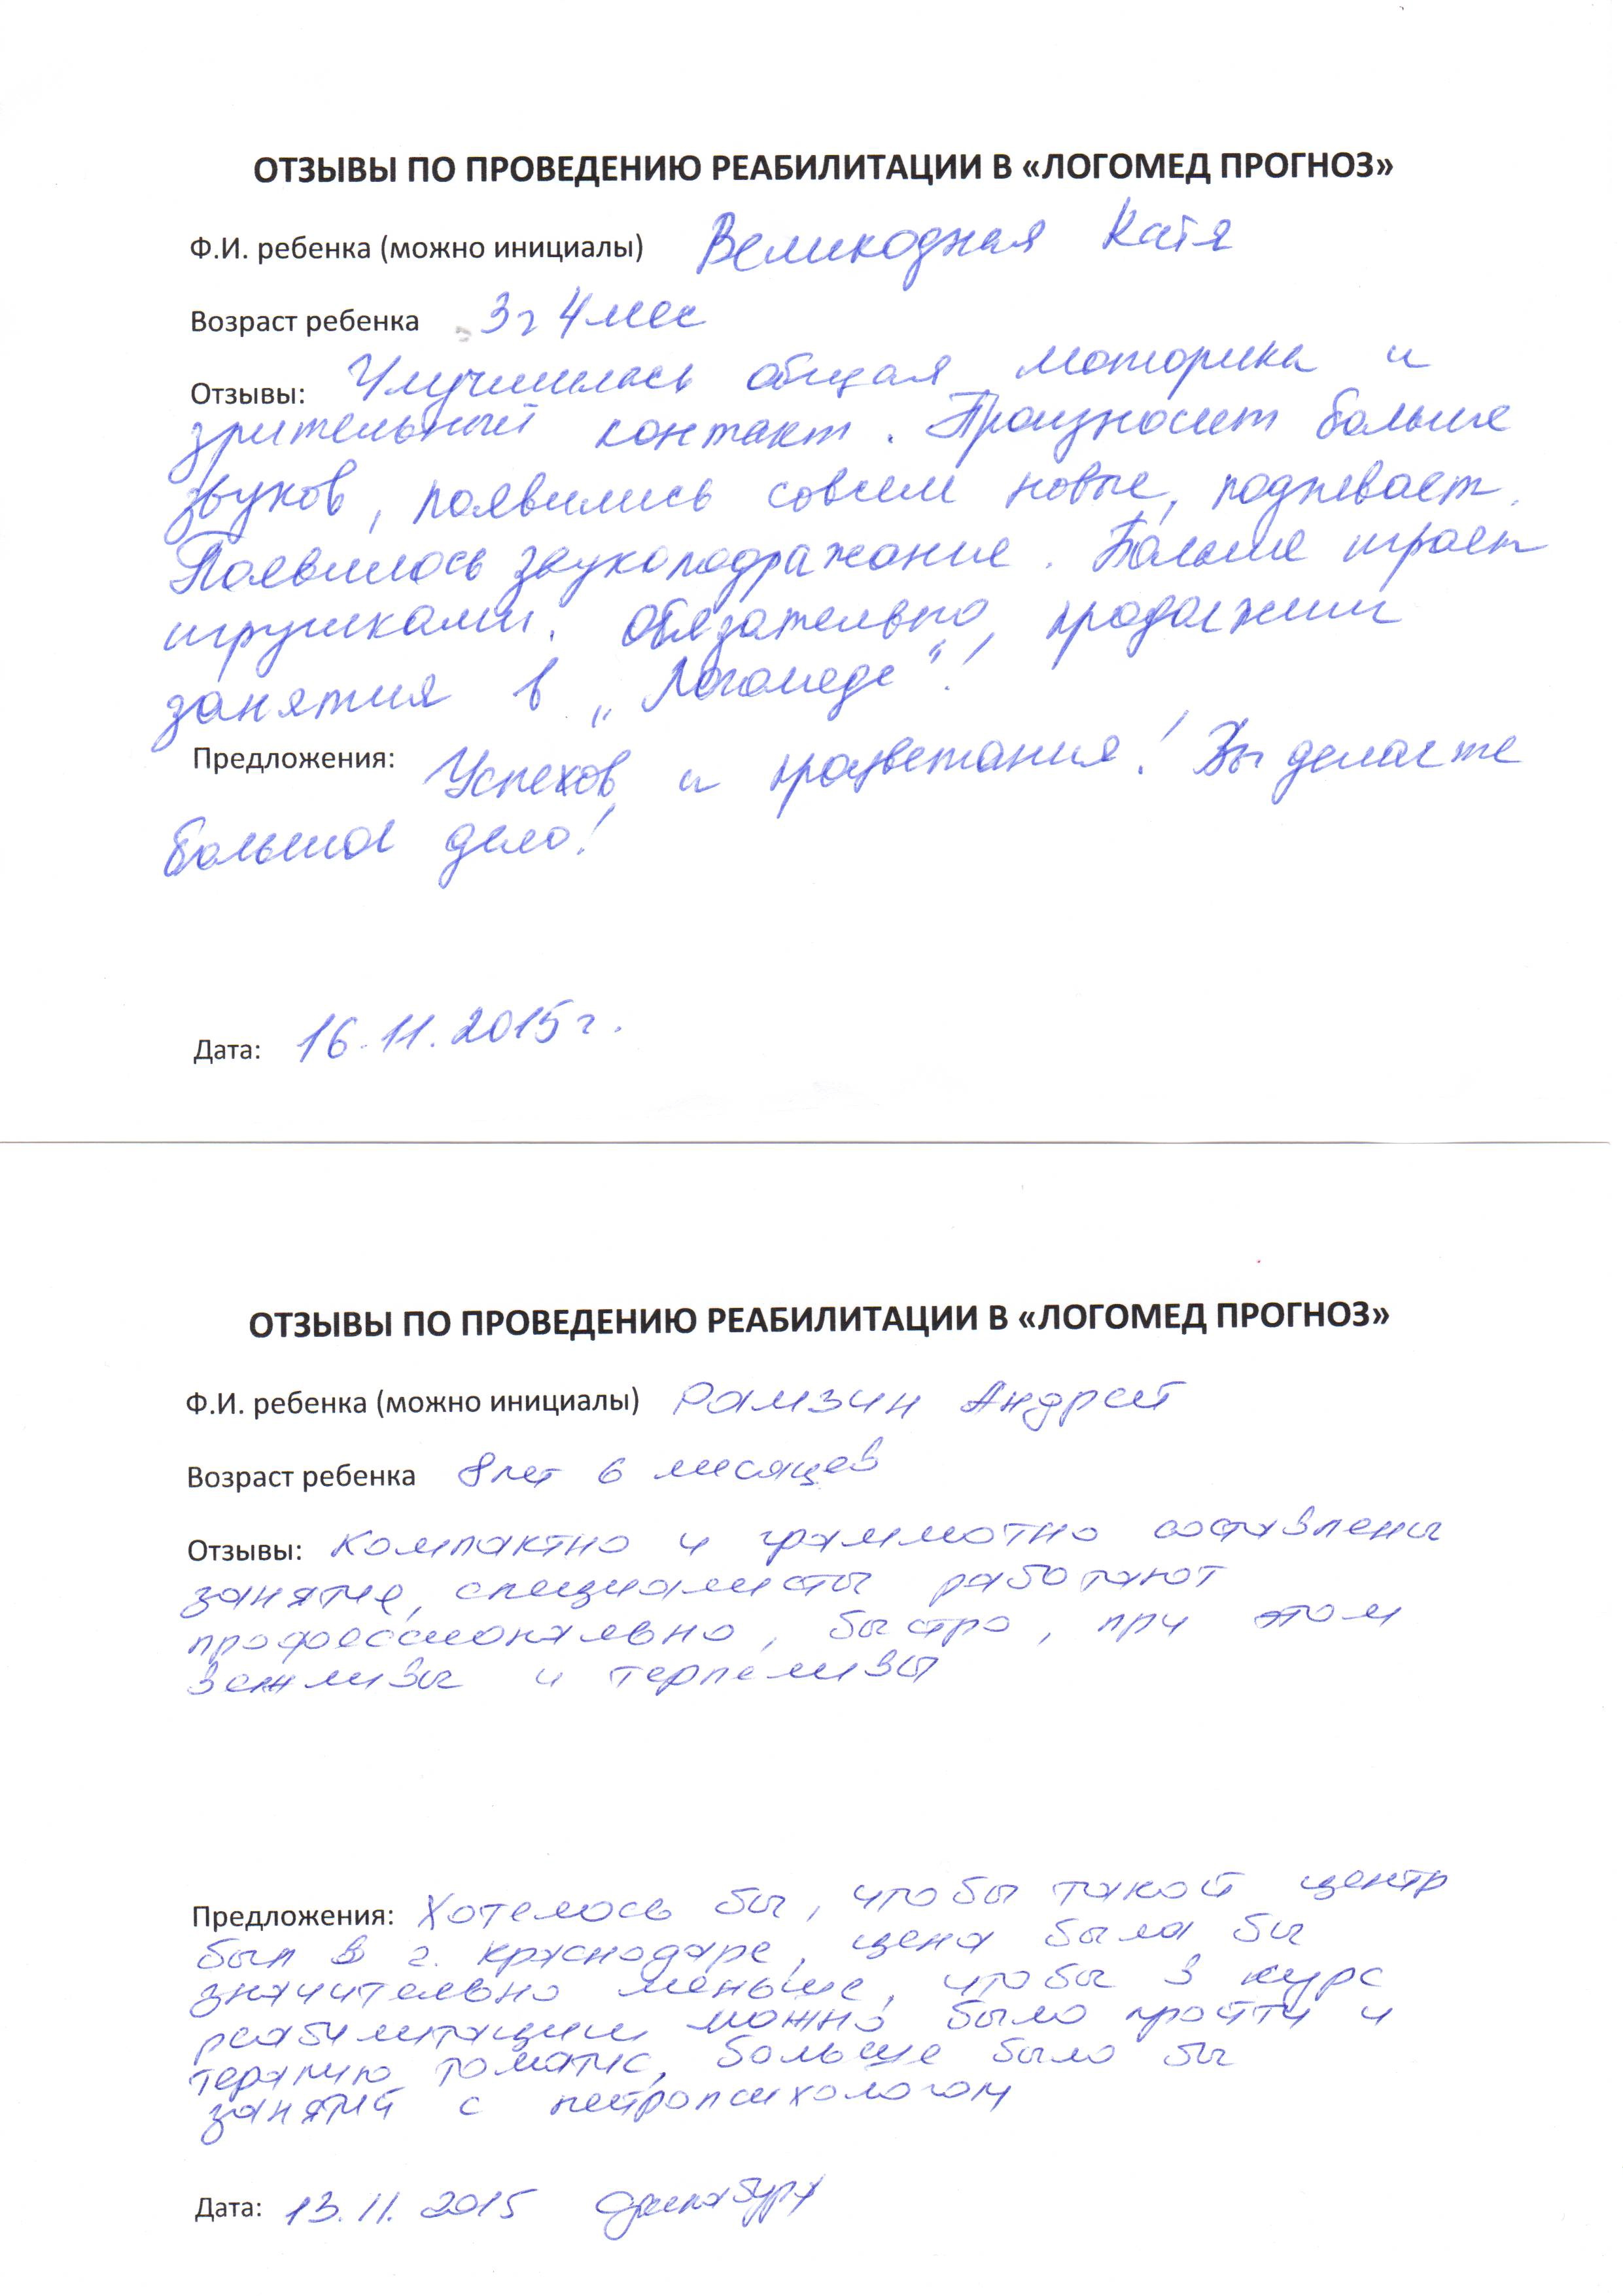 ОТЗЫВЫ ПО ПРОВЕДЕНИЮ РЕАБИЛИТАЦИИ В «ЛОГОМЕД ПРОГНОЗ»
Ф.И. ребенка (можно инициалы) Великодная Катя
Возраст ребенка 3г 4 мес
Отзывы: Улучшилась общая моторика и
зрительный контакт. Произносит больше
звуков, появились совсем новые, подпевает.
Появилось звукоподражание. Больше играет
игрушками. Обязательно продолжим
занятия в „Логомеде"!
Предложения: Успехов и процветания! Вы делаете
большое дело!
Дата: 16.11.2015г.
ОТЗЫВЫ ПО ПРОВЕДЕНИЮ РЕАБИЛИТАЦИИ В «ЛОГОМЕД ПРОГНОЗ»
Ф.И. ребенка (можно инициалы) Рамзин Андрей
Возраст ребенка 8 лет 6 месяцев
Отзывы: Компактно и граммотно составлены
занятие, специалисты работают
профессионально, быстро, при этом
вежливы и терпеливы
Предложения: Хотелось бы, чтобы такой центр
был в г. Краснодаре, цена была бы
значительно меньше, чтобы в курс
реабилитации можно было пройти и
терапию томатис, больше было бы
занятий с нейропсихологом
Дата: 13.11.2015